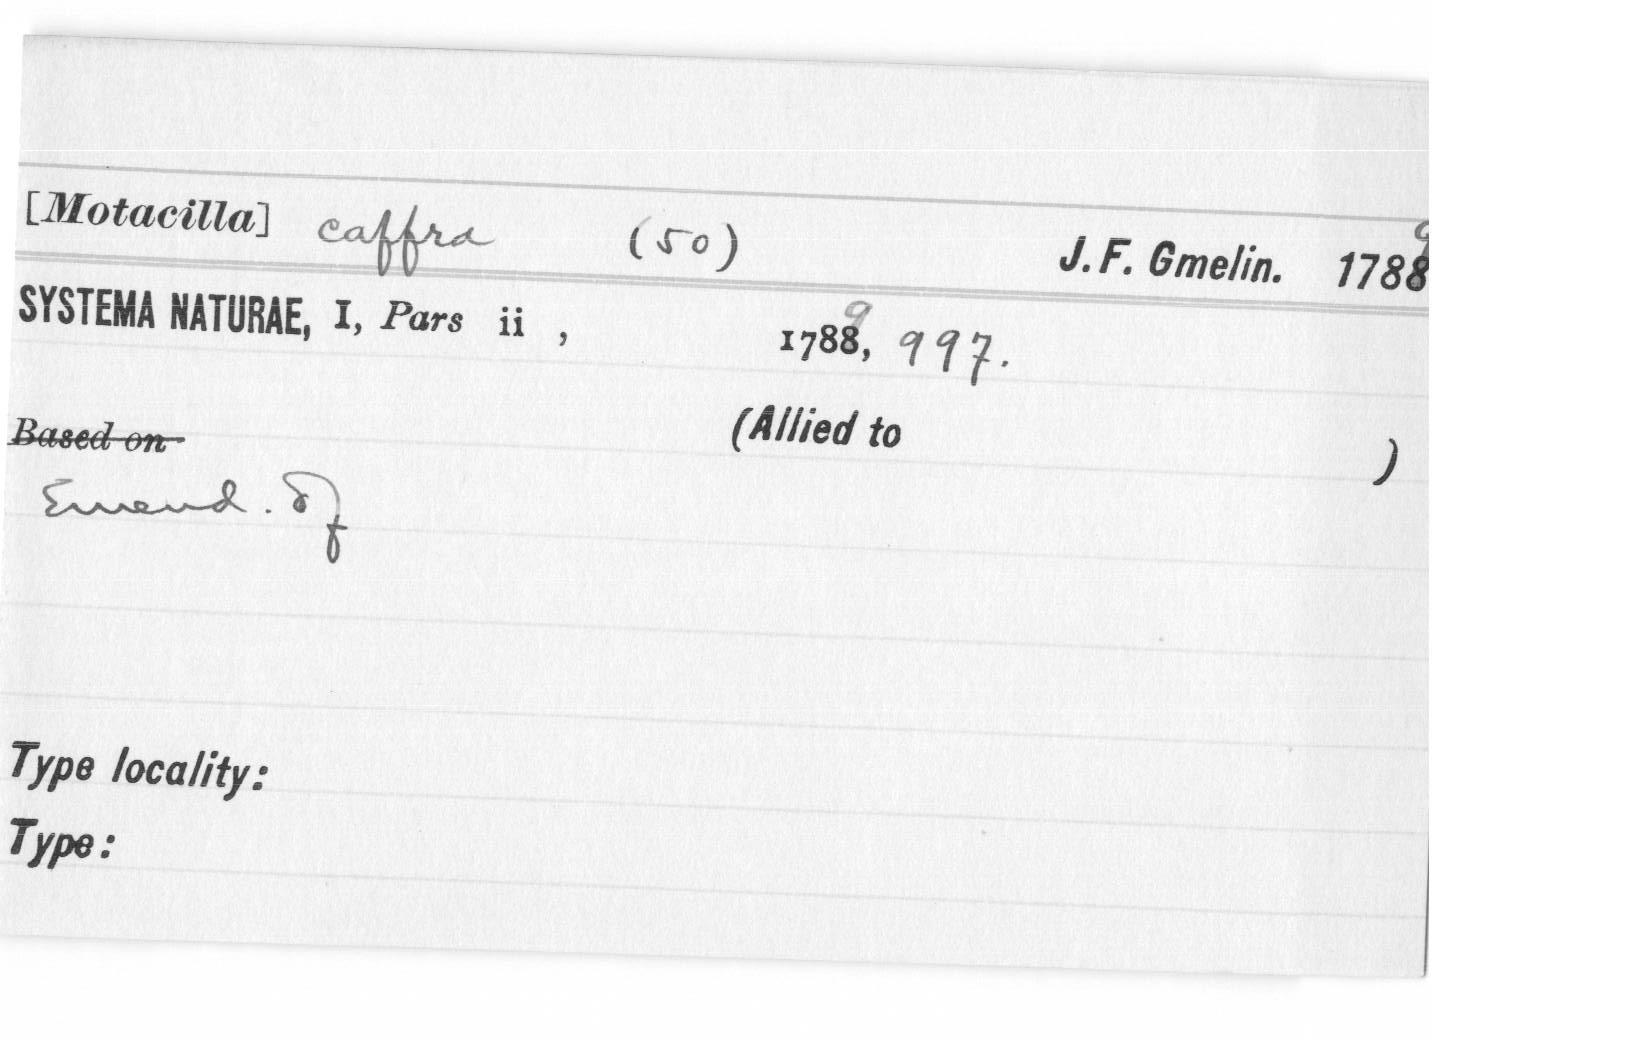 [Motacilla] caffra (50) J. F. Gmelin. 1788 9
SYSTEMA NATURAE, I, Pars ii , 1788 9, 997.
Based on (Allied to )
Emend. of
Type locality:
Type: